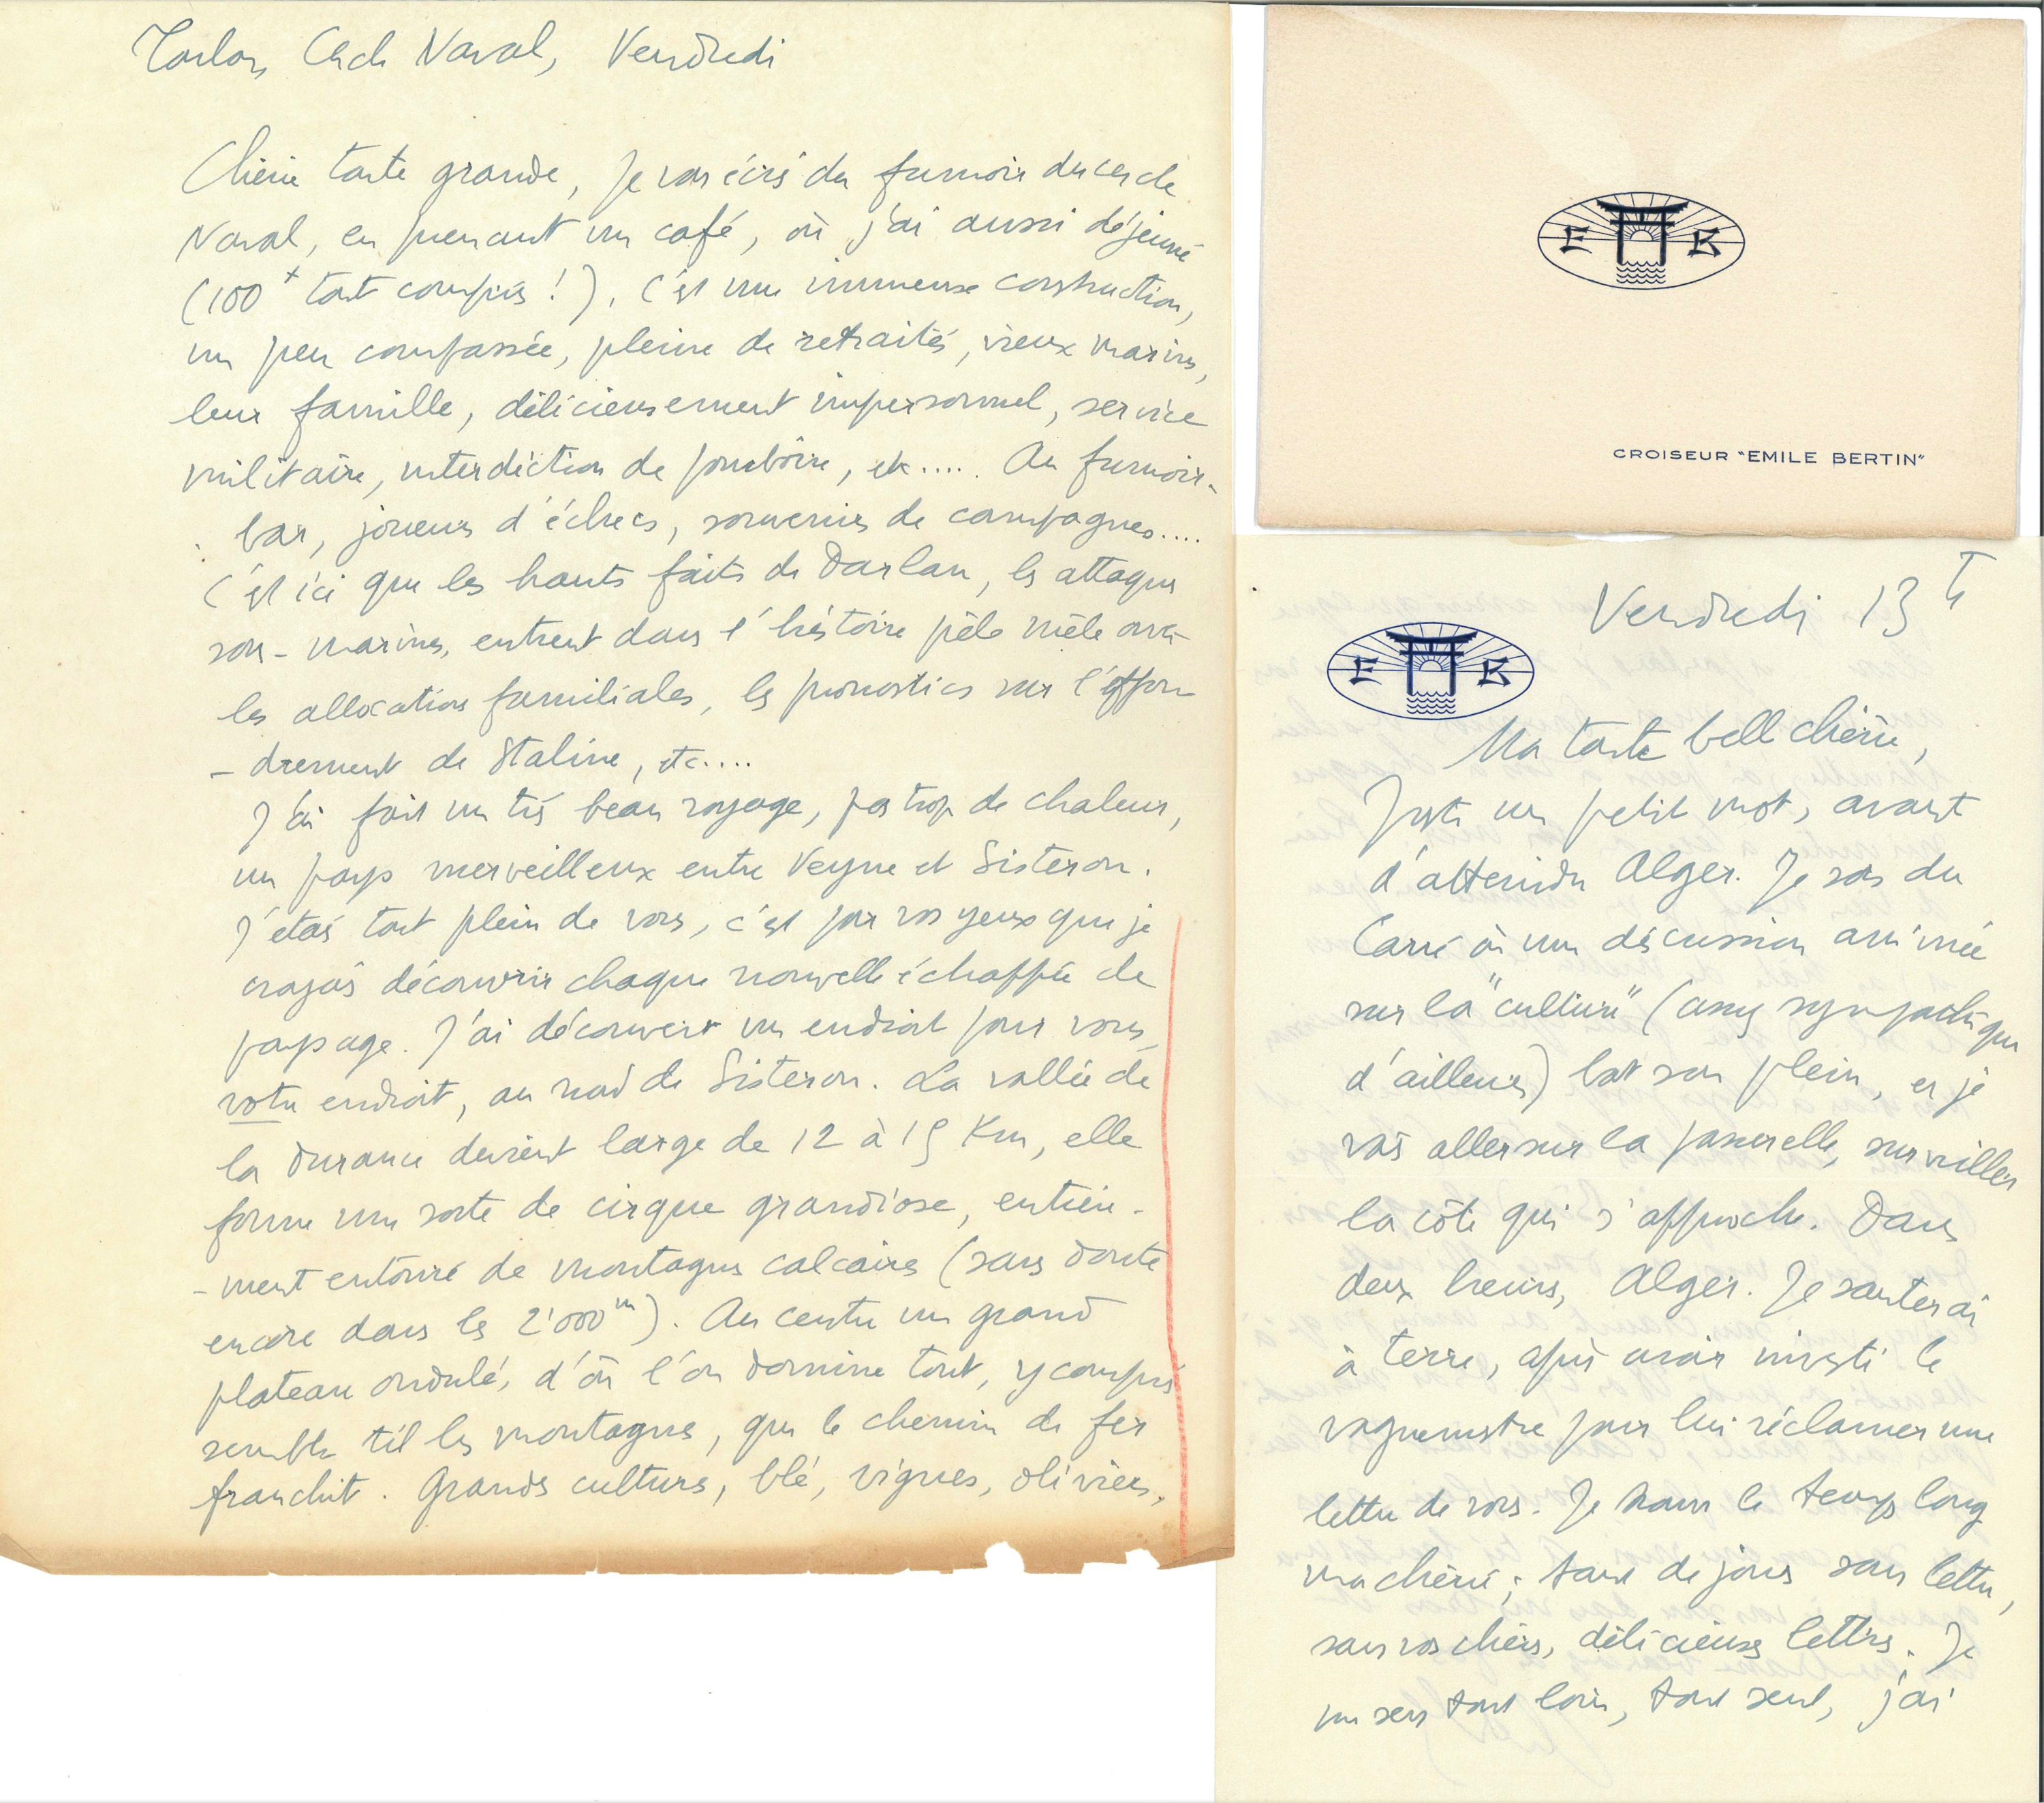 Toulon, Cercle Naval, Vendredi
Chérie toute grande, Je vous écris du fumoir du cercle
Naval, en prenant un café, où j'ai aussi déjeuné
(100 + tout compris !). C'est une immense construction,
un peu compassée, pleine de retraités, vieux marins,
leur famille, délicieusement impersonnel, service
militaire, interdiction de pourboire, etc..... Au fumoir-
bar, joueurs d'échecs, souvenirs de campagnes....
C'est ici que les hauts faits de Darlan, les attaques
sous-marines, entrent dans l'histoire pêle mêle avec
les allocations familiales, les pronostics sur l'effon
-drement de Staline, etc....
J'ai fait un très beau voyage, pas trop de chaleur,
un pays merveilleux entre Veyne et Sisteron.
J'étais tout plein de vous, c'est par vos yeux que je
croyais découvrir chaque nouvelle échappée de
paysage. J'ai découvert un endroit pour vous,
votre endroit, au nord de Sisteron. La vallée de
la Durance devient large de 12 à 15 Km, elle
forme une sorte de cirque grandiose, entière-
-ment entouré de montagnes calcaires (sans doute
encore dans les 2'000 m). Au centre un grand
plateau ondulé, d'où l'on domine tout, y compris
semble t'il les montagnes, que le chemin de fer
franchit. Grands cultures, blé, vignes, oliviers,
E B
CROISEUR "EMILE BERTIN"
Vendredi 13
E B
Ma toute belle chérie,
Juste un petit mot, avant
d'atteindre Alger. Je sors du
Carré où une discussion animée
sur la "culture" (assez sympathique
d'ailleurs) bat son plein, et je
vais aller sur la passerelle, surveiller
la côte qui s'approche. Dans
deux heures, Alger. Je sauterai
à terre, après avoir investi le
vaguemestre pour lui réclamer une
lettre de vous. Je trouve le temps long
ma chérie ; tant de jours sans lettre,
sans vos chères, délicieuses lettres. Je
me sens tout loin, tout seul, j'ai